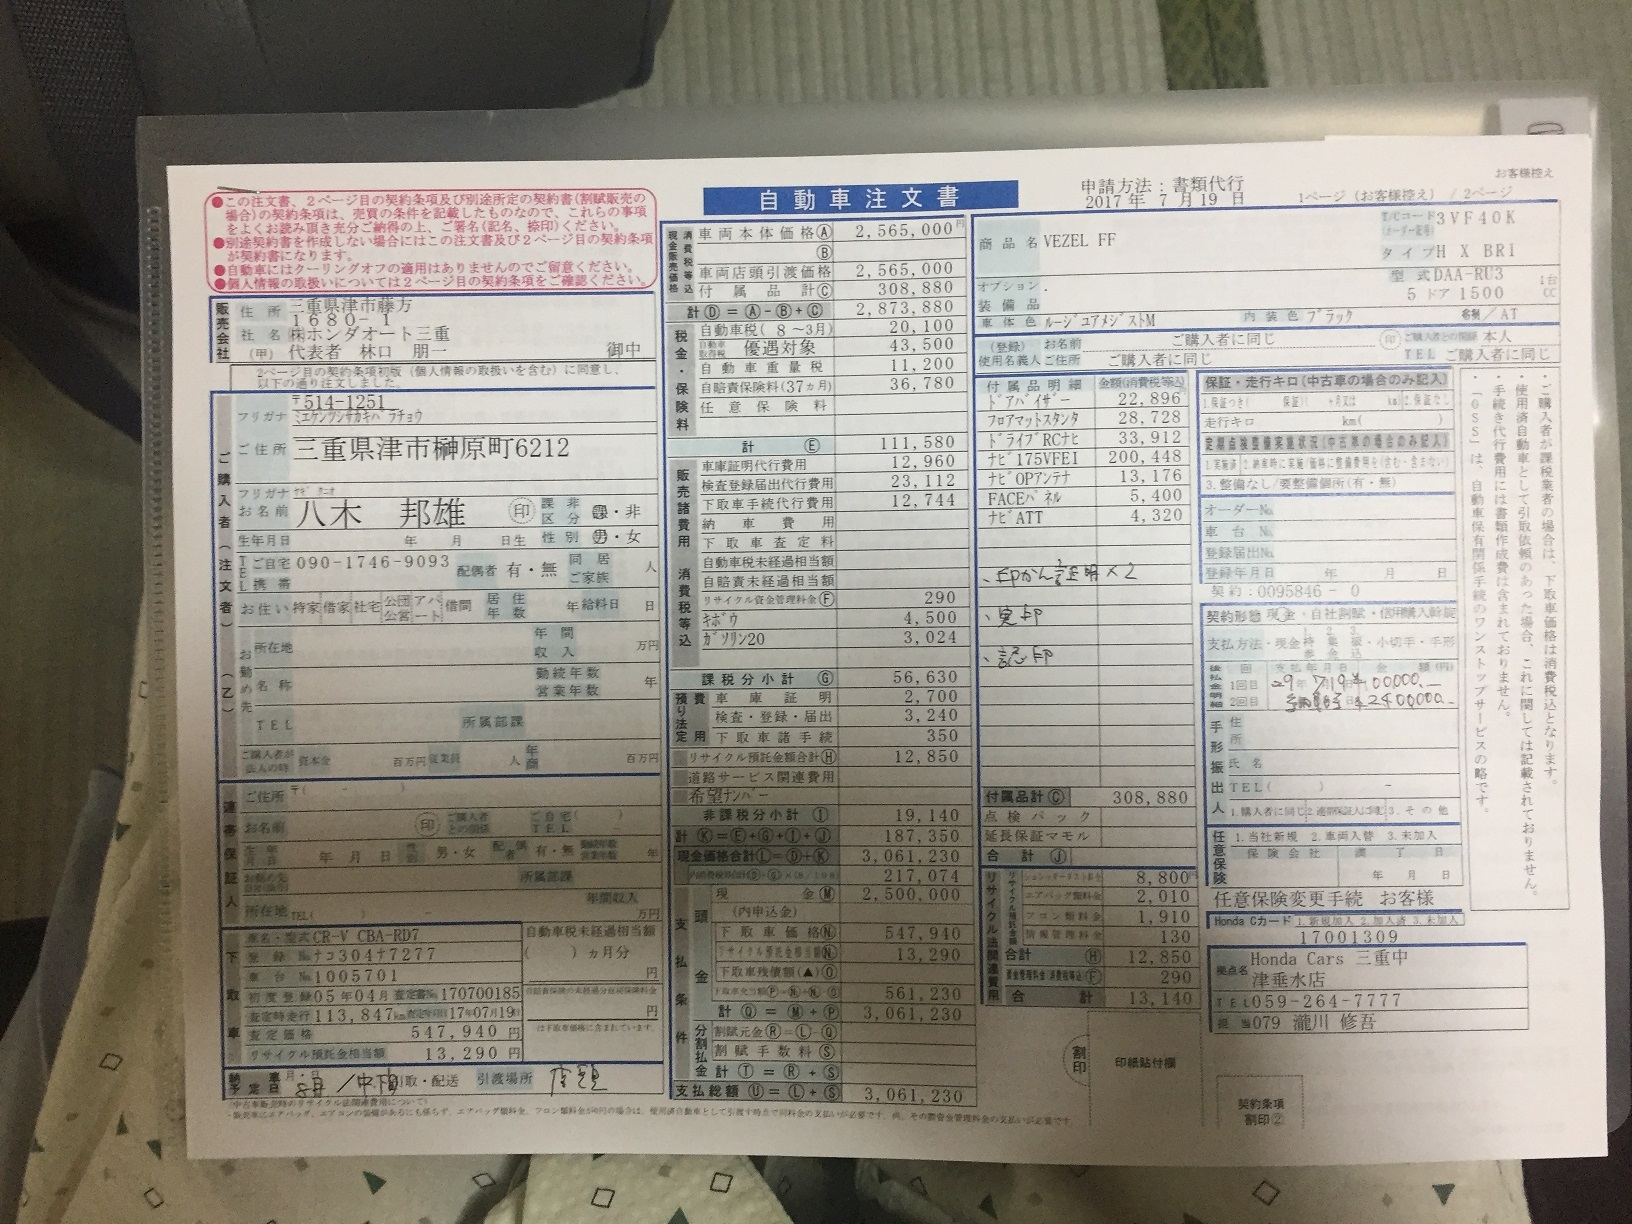 お客様控え
自動車注文書
申請方法：書類代行
2017年 7月19日
1ページ（お客様控え） / 2ページ
●この注文書、2ページ目の契約条項及び別途所定の契約書(割賦販売の
場合)の契約条項は、売買の条件を記載したものなので、これらの事項
をよくお読み頂き充分ご納得の上、ご署名(記名、捺印)ください。
●別途契約書を作成しない場合にはこの注文書及び2ページ目の契約条項
が契約書になります。
●自動車にはクーリングオフの適用はありませんのでご留意ください。
●個人情報の取扱いについては2ページ目の契約条項をご確認ください。
販売会社
住所 三重県津市藤方
1680-1
社名 ㈱ホンダオート三重
(甲) 代表者 林口 朋一 御中
2ページ目の契約条項初版（個人情報の取扱いを含む）に同意し、
以下の通り注文しました。
ご購入者（注文者）（乙）
〒514-1251
フリガナ ミエケンツシサカキバラチョウ
ご住所 三重県津市榊原町6212
フリガナ ヤギ クニオ
お名前 八木 邦雄 印 課非区分 課・非
生年月日 年 月 日生 性別 男・女
TEL ご自宅 携帯 090-1746-9093 配偶者 有・無 同居ご家族 人
お住い 持家 借家 社宅 公団公営 アパート 借間 居住年数 年 給料日 日
お勤め先
所在地 年間収入 万円
名称 勤続年数 営業年数 年
TEL 所属部課
ご購入者が法人の時 資本金 百万円 従業員 人 年商 百万円
連帯保証人
ご住所 〒( - )
お名前 印 ご購入者との関係 ご自宅TEL ( )
生年月日 年 月 日 性別 男・女 配偶者 有・無 年
所属部課
所在地 TEL( ) - 年間収入 万円
下取車
車名・型式 CR-V CBA-RD7
登録 № ナコ304ナ7277
車台 № 1005701
初度登録 05年04月 査定書№ 170700185
査定時走行 113,847km 査定年月日 17年07月19日
査定価格 547,940 円
リサイクル預託金相当額 13,290 円
自動車税未経過相当額
( )ヵ月分
円
円
は下取車価格に含まれています。
納車予定日 月・日 8月/中旬 引取・配送 引渡場所 店頭
(中古車販売時のリサイクル法関連費用について)
現金販売価格 消費税等込
車両本体価格Ⓐ 2,565,000円
Ⓑ
車両店頭引渡価格 2,565,000
付属品計Ⓒ 308,880
計Ⓓ＝Ⓐ-Ⓑ+Ⓒ 2,873,880
税金・保険料
自動車税( 8～3月) 20,100
自動車取得税 優遇対象 43,500
自動車重量税 11,200
自賠責保険料(37ヵ月) 36,780
任意保険料
計 Ⓔ 111,580
販売諸費用 消費税等込
車庫証明代行費用 12,960
検査登録届出代行費用 23,112
下取車手続代行費用 12,744
納車費用
下取車査定料
自動車税未経過相当額
自賠責未経過相当額
リサイクル資金管理料金Ⓕ 290
キボウ 4,500
ガソリン20 3,024
課税分小計 Ⓖ 56,630
預り法定費用
車庫証明 2,700
検査・登録・届出 3,240
下取車諸手続 350
リサイクル預託金額合計Ⓗ 12,850
道路サービス関連費用
希望ナンバー
非課税分小計 Ⓘ 19,140
計Ⓚ＝Ⓔ+Ⓖ+Ⓘ+Ⓙ 187,350
現金価格合計Ⓛ＝Ⓓ+Ⓚ 3,061,230
217,074
支払条件
頭金
現金Ⓜ 2,500,000
(内申込金)
下取車価格Ⓝ 547,940
リサイクル預託金相当額 13,290
下取車残債額(▲)Ⓞ
561,230
計Ⓠ＝Ⓜ+Ⓟ 3,061,230
分割払金
割賦元金Ⓡ＝Ⓛ-Ⓠ
割賦手数料Ⓢ
計Ⓣ＝Ⓡ+Ⓢ
支払総額Ⓤ＝Ⓛ+Ⓢ 3,061,230
商品名 VEZEL FF
T/Cコード 3VF40K
タイプ H X BRI
型式 DAA-RU3 1台
オプション .
装備品
5ドア 1500 CC
車体色 ルージュアメジストM 内装色 ブラック /AT
(登録) お名前 ご購入者に同じ 印 ご購入者との関係 本人
使用名義人 ご住所 ご購入者に同じ TEL ご購入者に同じ
付属品明細 金額(消費税等込)
ドアバイザー 22,896
フロアマットスタンダ 28,728
ドライブRCナビ 33,912
ナビ175VFEI 200,448
ナビOPアンテナ 13,176
FACEパネル 5,400
ナビATT 4,320
、印かん証明×2
、実印
、認印
付属品計Ⓒ 308,880
点検パック
延長保証マモル
合計Ⓙ
リサイクル法関連費用
8,800円
エアバッグ類料金 2,010
フロン類料金 1,910
情報管理料金 130
合計 Ⓗ 12,850
Ⓕ 290
合計 13,140
割印
印紙貼付欄
契約条項
割印②
保証・走行キロ(中古車の場合のみ記入)
走行キロ km( )
定期点検整備実施状況(中古車の場合のみ記入)
1.実施済 2.納車時に実施(価格に整備費用を(含む・含まない)
3.整備なし/要整備個所(有・無)
オーダー№
車台№
登録届出№
登録年月日 年 月 日
契約:0095846 - 0
契約形態 現金・自社割賦・信用購入斡旋
支払方法・現金 持参 集金 振込・小切手・手形
回 支払年月日 金額(円)
1回目 29年 7月19日 ¥100000.-
2回目 納車時 ¥2400000.-
手形振出人
住所
氏名
TEL( )
任意保険
1.当社新規 2.車両入替 3.未加入
保険会社 満了日
年 月 日
任意保険変更手続 お客様
Honda Cカード 1.新規加入 2.加入済 3.未加入
17001309
拠点名 Honda Cars 三重中
津垂水店
TEL 059-264-7777
担当 079 瀧川 修吾
・ご購入者が課税業者の場合は、下取車価格は消費税込となります。
・使用済自動車として引取依頼のあった場合、これに関しては記載されておりません。
・手続き代行費用には書類作成費は含まれておりません。
・「OSS」は、自動車保有関係手続のワンストップサービスの略です。